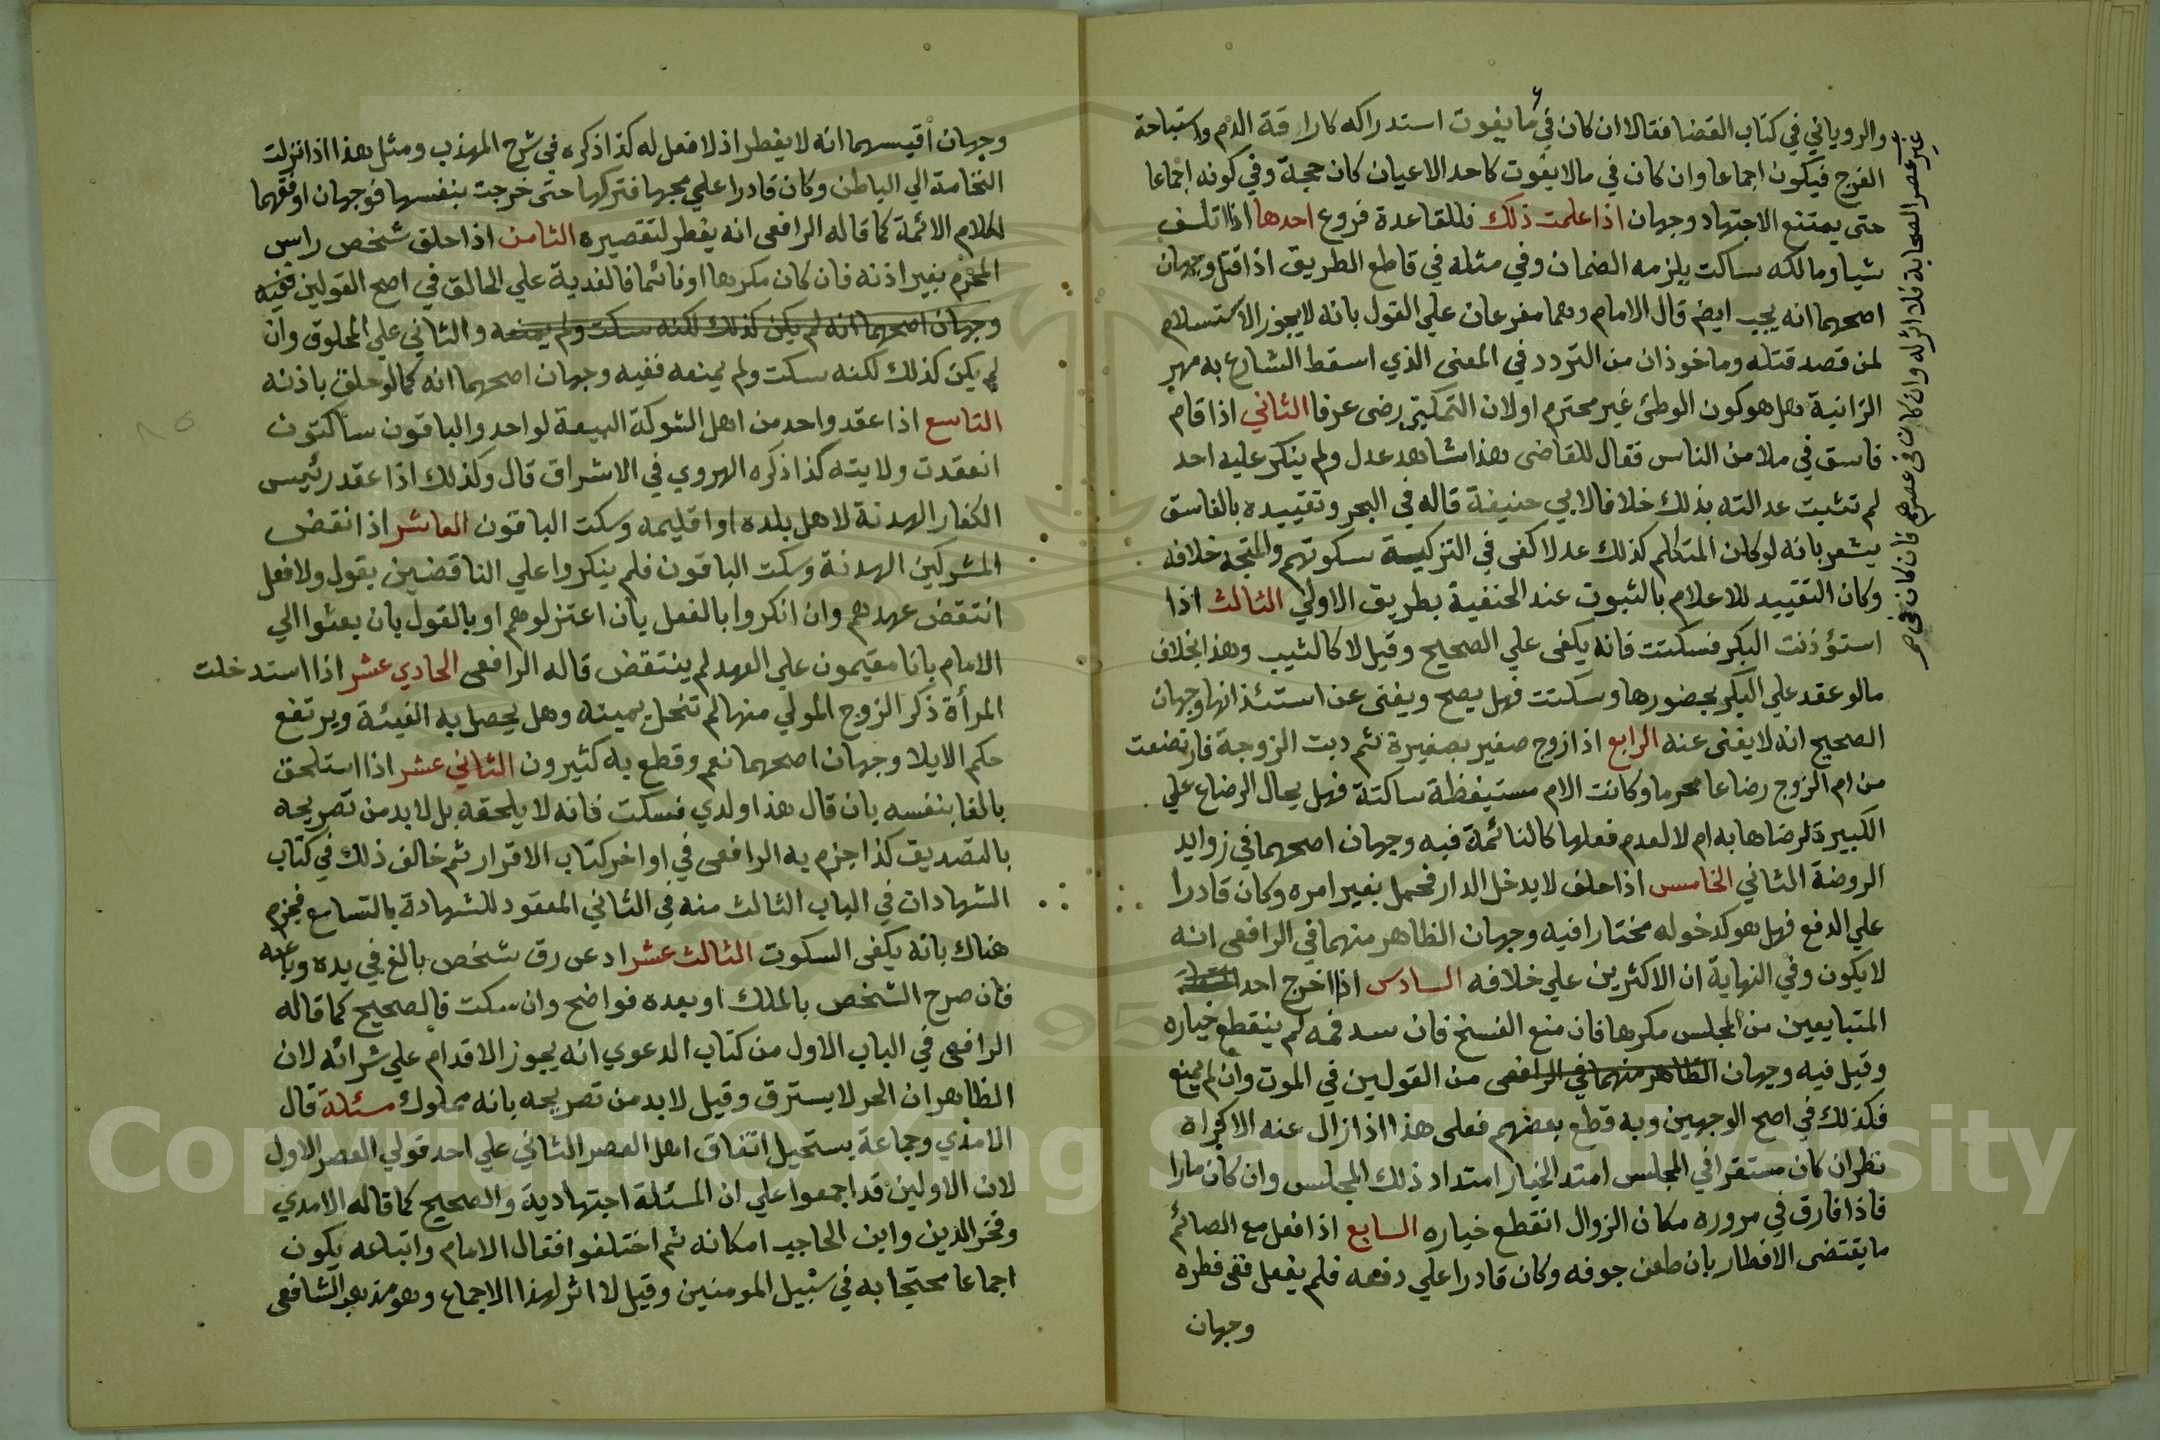 والروياني في كتاب القضا فقالا ان كان في ما يفوت استدراكه كاراقة الدم واستباحة
الفرج فيكون اجماعا وان كان في مالا يفوت كاحد الاعيان كان حجة وفي كونه اجماعا
حتى يمتنع الاجتهاد وجهان اذا علمت ذلك فللقاعدة فروع احدها اذا اتلف
شيا ومالكه ساكت يلزمه الضمان وفي مثله في قاطع الطريق اذا قتل وجهان
اصحهما انه يجب ايضم قال الامام وهما مفرعان علي القول بانه لا يجوز الاستسلام
لمن قصد قتله وماخوذان من التردد في المعنى الذي اسقط الشارع به مهر
الزانية هل هو كون الوطئ غير محترم او لان التمكين رضى عرفا الثاني اذا قام
فاسق في ملا من الناس فقال للقاضى هذا شاهد عدل ولم ينكر عليه احد
لم تثبت عدالته بذلك خلافا لابي حنيفة قاله في البحر وتقييده بالفاسق
يشعر بانه لو كان المتكلم كذلك عدلا كفى في التزكية سكوتهم والمتجه خلافه
وكان التقييد للاعلام بالثبوت عند الحنفية بطريق الاولي الثالث اذا
استؤذنت البكر فسكتت فانه يكفى علي الصحيح وقيل لا كالثيب وهذا بخلاف
مالو عقد علي البكر بحضورها وسكتت فهل يصح ويغنى عن استئذانها وجهان
الصحيح انه لا يغنى عنه الرابع اذا زوج صغير بصغيرة ثم دبت الزوجة فارتضعت
من ام الزوج رضاعا محرما وكانت الام مستيقظة ساكتة فهل يحال الرضاع علي
الكبيرة لرضاها به ام لا لعدم فعلها كالنائمة فيه وجهان اصحهما في زوايد
الروضة الثاني الخامس اذا حلف لا يدخل الدار فحمل بغير امره وكان قادرا
علي الدفع فهل هو كدخوله مختارا فيه وجهان الظاهر منهما في الرافعى انه
لا يكون وفي النهاية ان الاكثرين علي خلافه السادس اذا اخرج احد
المتبايعين من المجلس مكرها فان منع الفسخ فان سد فمه لم ينقطع خياره
وقيل فيه وجهان الظاهر منهما في الرافعى من القولين في الموت وان لم يمنع
فكذلك في اصح الوجهين وبه قطع بعضهم فعلى هذا اذا زال عنه الاكراه
نظر ان كان مستقرا في المجلس امتد الخيار امتداد ذلك المجلس وان كان مارا
فاذا فارق في مروره مكان الزوال انقطع خياره السابع اذا فعل مع الصائم
ما يقتضى الافطار بان طعن جوفه وكان قادرا علي دفعه فلم يفعل ففى فطره
وجهان
غير عصر الصحابة فلا اثر له وان كان في عصرهم فان كان في
وجهان اقيسهما انه لا يفطر اذ لا فعل له كذا ذكره في شرح المهذب ومثل هذا اذا نزلت
النخامة الي الباطن وكان قادرا علي مجها فتركها حتى خرجت بنفسها فوجهان اوفقهما
لكلام الائمة كما قاله الرافعى انه يفطر لتقصيره الثامن اذا حلق شخص راس
المحرم بغير اذنه فان كان مكرها او نائما فالفدية علي الحالق في اصح القولين ففيه
وجهان اصحهما انه لم يكن كذلك لكنه سكت ولم يمنعه والثاني علي المحلوق وان
لم يكن كذلك لكنه سكت ولم يمنعه ففيه وجهان اصحهما انه كما لو حلق باذنه
التاسع اذا عقد واحد من اهل الشوكة البيعة لواحد والباقون ساكتون
انعقدت ولايته كذا ذكره الهروي في الاشراف قال وكذلك اذا عقد رئيس
الكفار الهدنة لاهل بلده او اقليمه وسكت الباقون العاشر اذا نقض
المشركين الهدنة وسكت الباقون فلم ينكروا علي الناقضين بقول ولا فعل
انتقض عهدهم وان انكروا بالفعل بان اعتزلوهم او بالقول بان بعثوا الي
الامام بانا مقيمون علي العهد لم ينتقض قاله الرافعى الحادي عشر اذا استدخلت
المرأة ذكر الزوج المولي منها لم تنحل يمينه وهل يحصل به الفيئة ويرتفع
حكم الايلا وجهان اصحهما نعم وقطع به كثيرون الثاني عشر اذا استلحق
بالغا بنفسه بان قال هذا ولدي فسكت فانه لا يلحقه بل لا بد من تصريحه
بالتصديق كذا جزم به الرافعى في اواخر كتاب الاقرار ثم خالف ذلك في كتاب
الشهادات في الباب الثالث منه في الثاني المعقود للشهادة بالتسامع فجزم
هناك بانه يكفى السكوت الثالث عشر ادعى رق شخص بالغ في يده وباعه
فان صرح الشخص بالملك او بعده فواضح وان سكت فالصحيح كما قاله
الرافعى في الباب الاول من كتاب الدعوي انه يجوز الاقدام علي شرائه لان
الظاهر ان الحر لا يسترق وقيل لا بد من تصريحه بانه مملوك مسئلة قال
الامدي وجماعة يستحيل اتفاق اهل العصر الثاني علي احد قولي العصر الاول
لان الاولين قد اجمعوا علي ان المسئلة اجتهادية والصحيح كما قاله الامدي
وفخر الدين وابن الحاجب امكانه ثم اختلفوا فقال الامام واتباعه يكون
اجماعا محتجا به في سبيل المومنين وقيل لا اثر لهذا الاجماع وهو مذهب الشافعى
Copyright © King Saud University